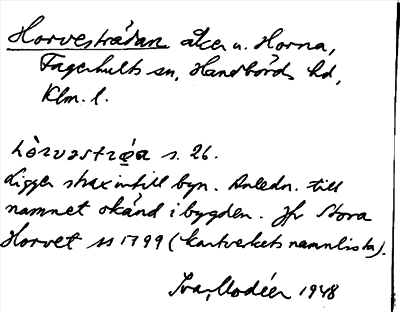 Horvesträdan åker u. Horna,
Fagerhults sn, Handbörds hd,
Klm. l.
s. 26.
Ligger strax intill byn. Anledn. till
namnet okänd i bygden. Jfr Stora
Horvet 1799 (kartverkets namnlista).
Ivar Modéer 1948